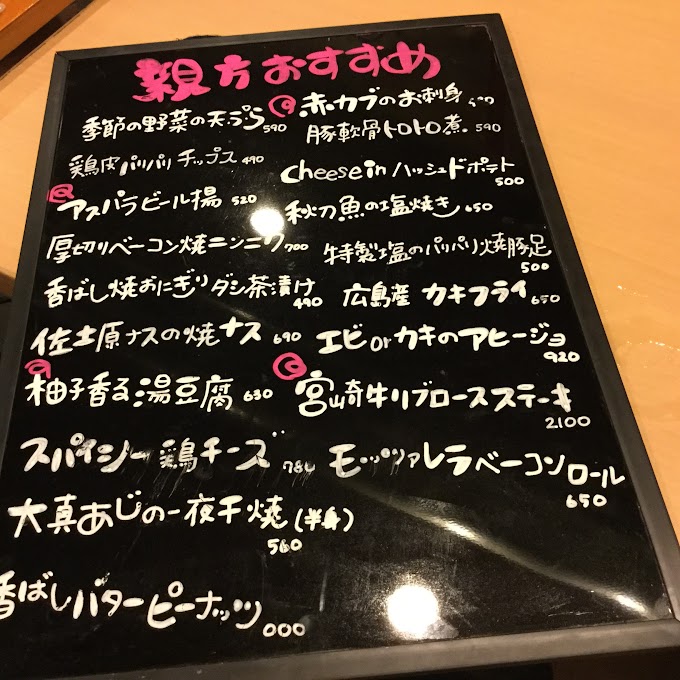 親方おすすめ
季節の野菜の天ぷら 590
鶏皮パリパリチップス 490
アスパラビール揚 520
厚切りベーコン焼ニンニク 700
香ばし焼おにぎりダシ茶漬け 490
佐土原ナスの焼ナス 690
柚子香る湯豆腐 650
スパイシー鶏チーズ 780
大真あじの一夜干焼(半身) 560
香ばしバターピーナッツ
赤カブのお刺身
豚軟骨トロトロ煮 590
cheese in ハッシュドポテト 500
秋刀魚の塩焼き 650
特製塩のパリパリ焼豚足 500
広島産カキフライ 650
エビorカキのアヒージョ 920
宮崎牛リブロースステーキ 2100
モッツァレラベーコンロール 650